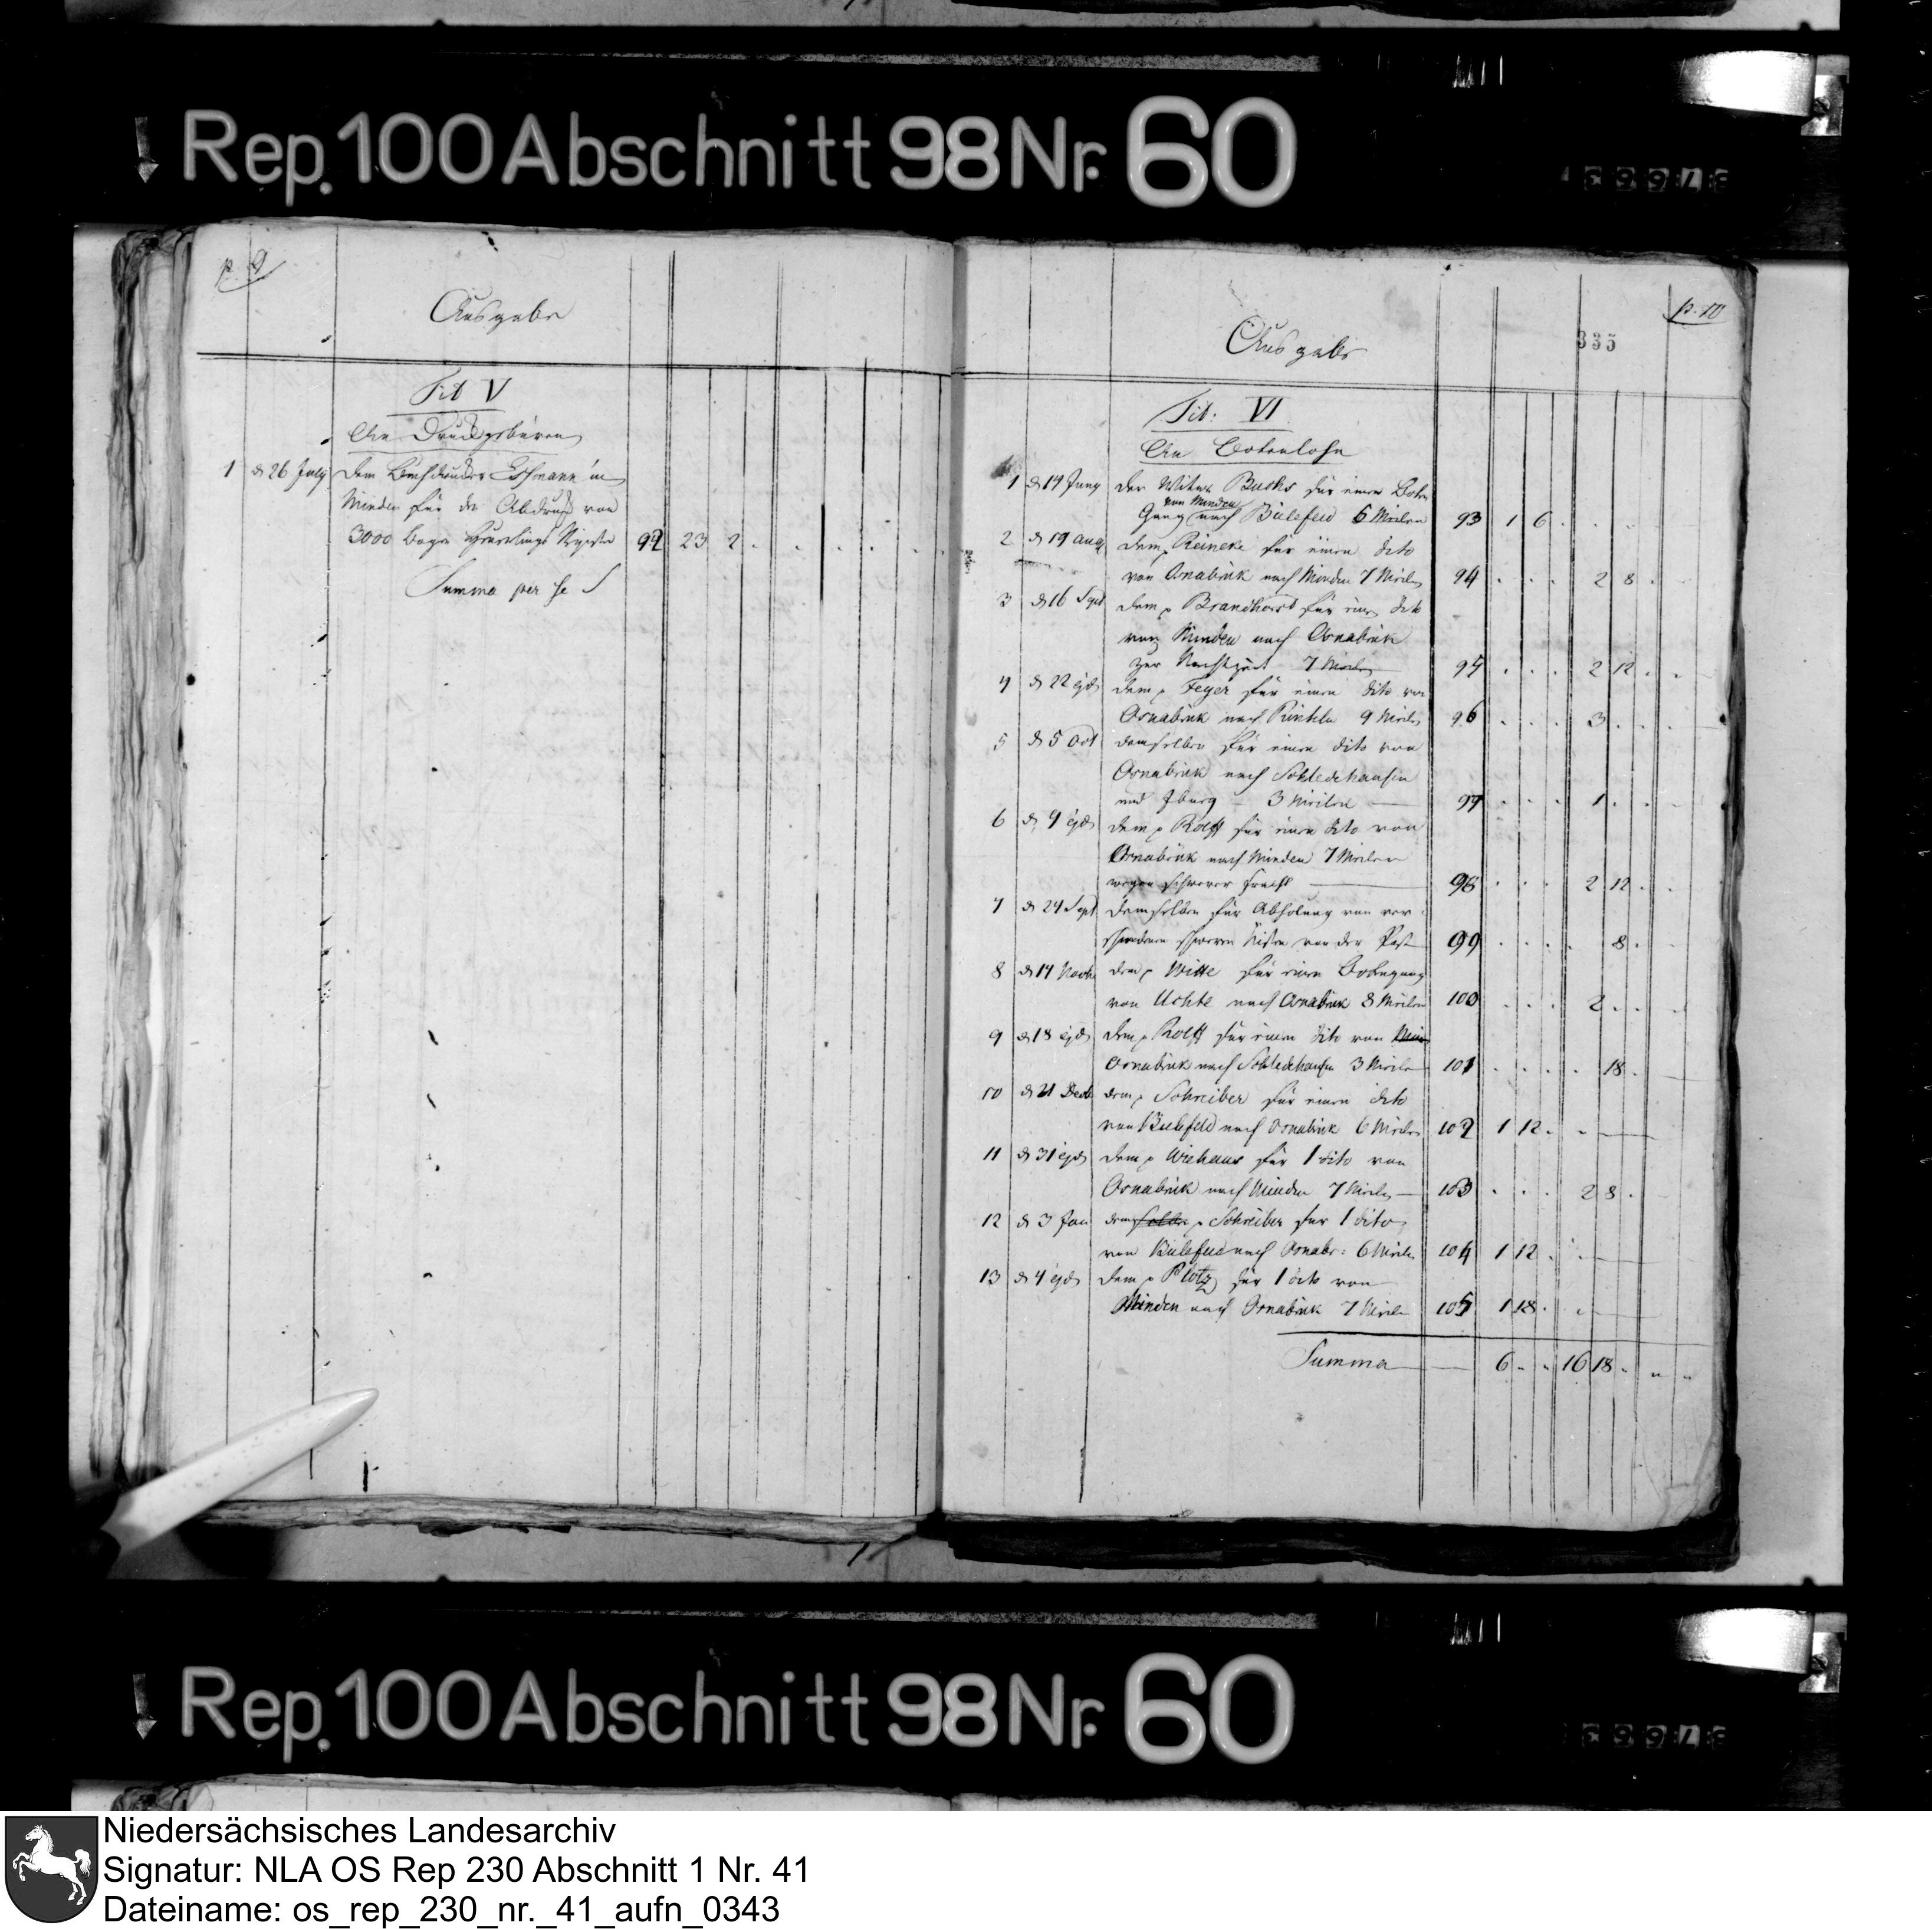 Rep. 100 Abschnitt 98 Nr. 60
p. 9
Ausgabe
Tit V
An Druckgebüren
1 d 26 July dem Buchdrucker in
Minden für den Abdruck von
3000 Bogen Heuerlings Register 92 23 2
Summa per se
p. 10
335
Ausgabe
Tit: VI
An Botenlohn
1 d 14 Juny der Witwe Backs für einen Boten
von Minden
Gang nach Bielefeld 6 Meilen 93 1 6
2 d 19 Aug dem p Reineke für einen dito
von Osnabrük nach Minden 7 Meilen 94 2 8
3 d 16 Sept dem p Brandhorst für einen dito
von Minden nach Osnabrük
zur Nachtzeit 7 Meilen 95 2 12
4 d 22 ejd dem p Feyer für einen dito von
Osnabrük nach Rinteln 9 Meilen 96 3
5 d 5 Oct demselben für einen dito von
Osnabrük nach Schledehausen
und Iburg 3 Meilen 97 1
6 d 9 ejd dem p Rolff für einen dito von
Osnabrük nach Minden 7 Meilen
wegen schwerer Fracht 98 2 12
7 d 24 Sept demselben für Abholung von ver
schiedenen schweren Kisten von der Post 99 8
8 d 14 Novbr dem p Witte für einen Botengang
von Uchte nach Osnabrük 8 Meilen 100 2
9 d 18 ejd dem p Rolff für einen dito von
Osnabrük nach Schledehausen 3 Meilen 101 18
10 d 21 Decb dem p Schreiber für einen dito
von Bielefeld nach Osnabrük 6 Meilen 102 1 12
11 d 31 ejd dem p Wiehaus für 1 dito von
Osnabrük nach Minden 7 Meilen 103 2 8
12 d 3 Jan demselben p Schreiber für 1 dito
von Bielefeld nach Osnabr: 6 Meilen 104 1 12
13 d 4 ejd dem p Plotz für 1 dito von
Minden nach Osnabrük 7 Meilen 105 1 18
Summa 6 16 18
Rep. 100 Abschnitt 98 Nr. 60
Niedersächsisches Landesarchiv
Signatur: NLA OS Rep 230 Abschnitt 1 Nr. 41
Dateiname: os_rep_230_nr._41_aufn_0343